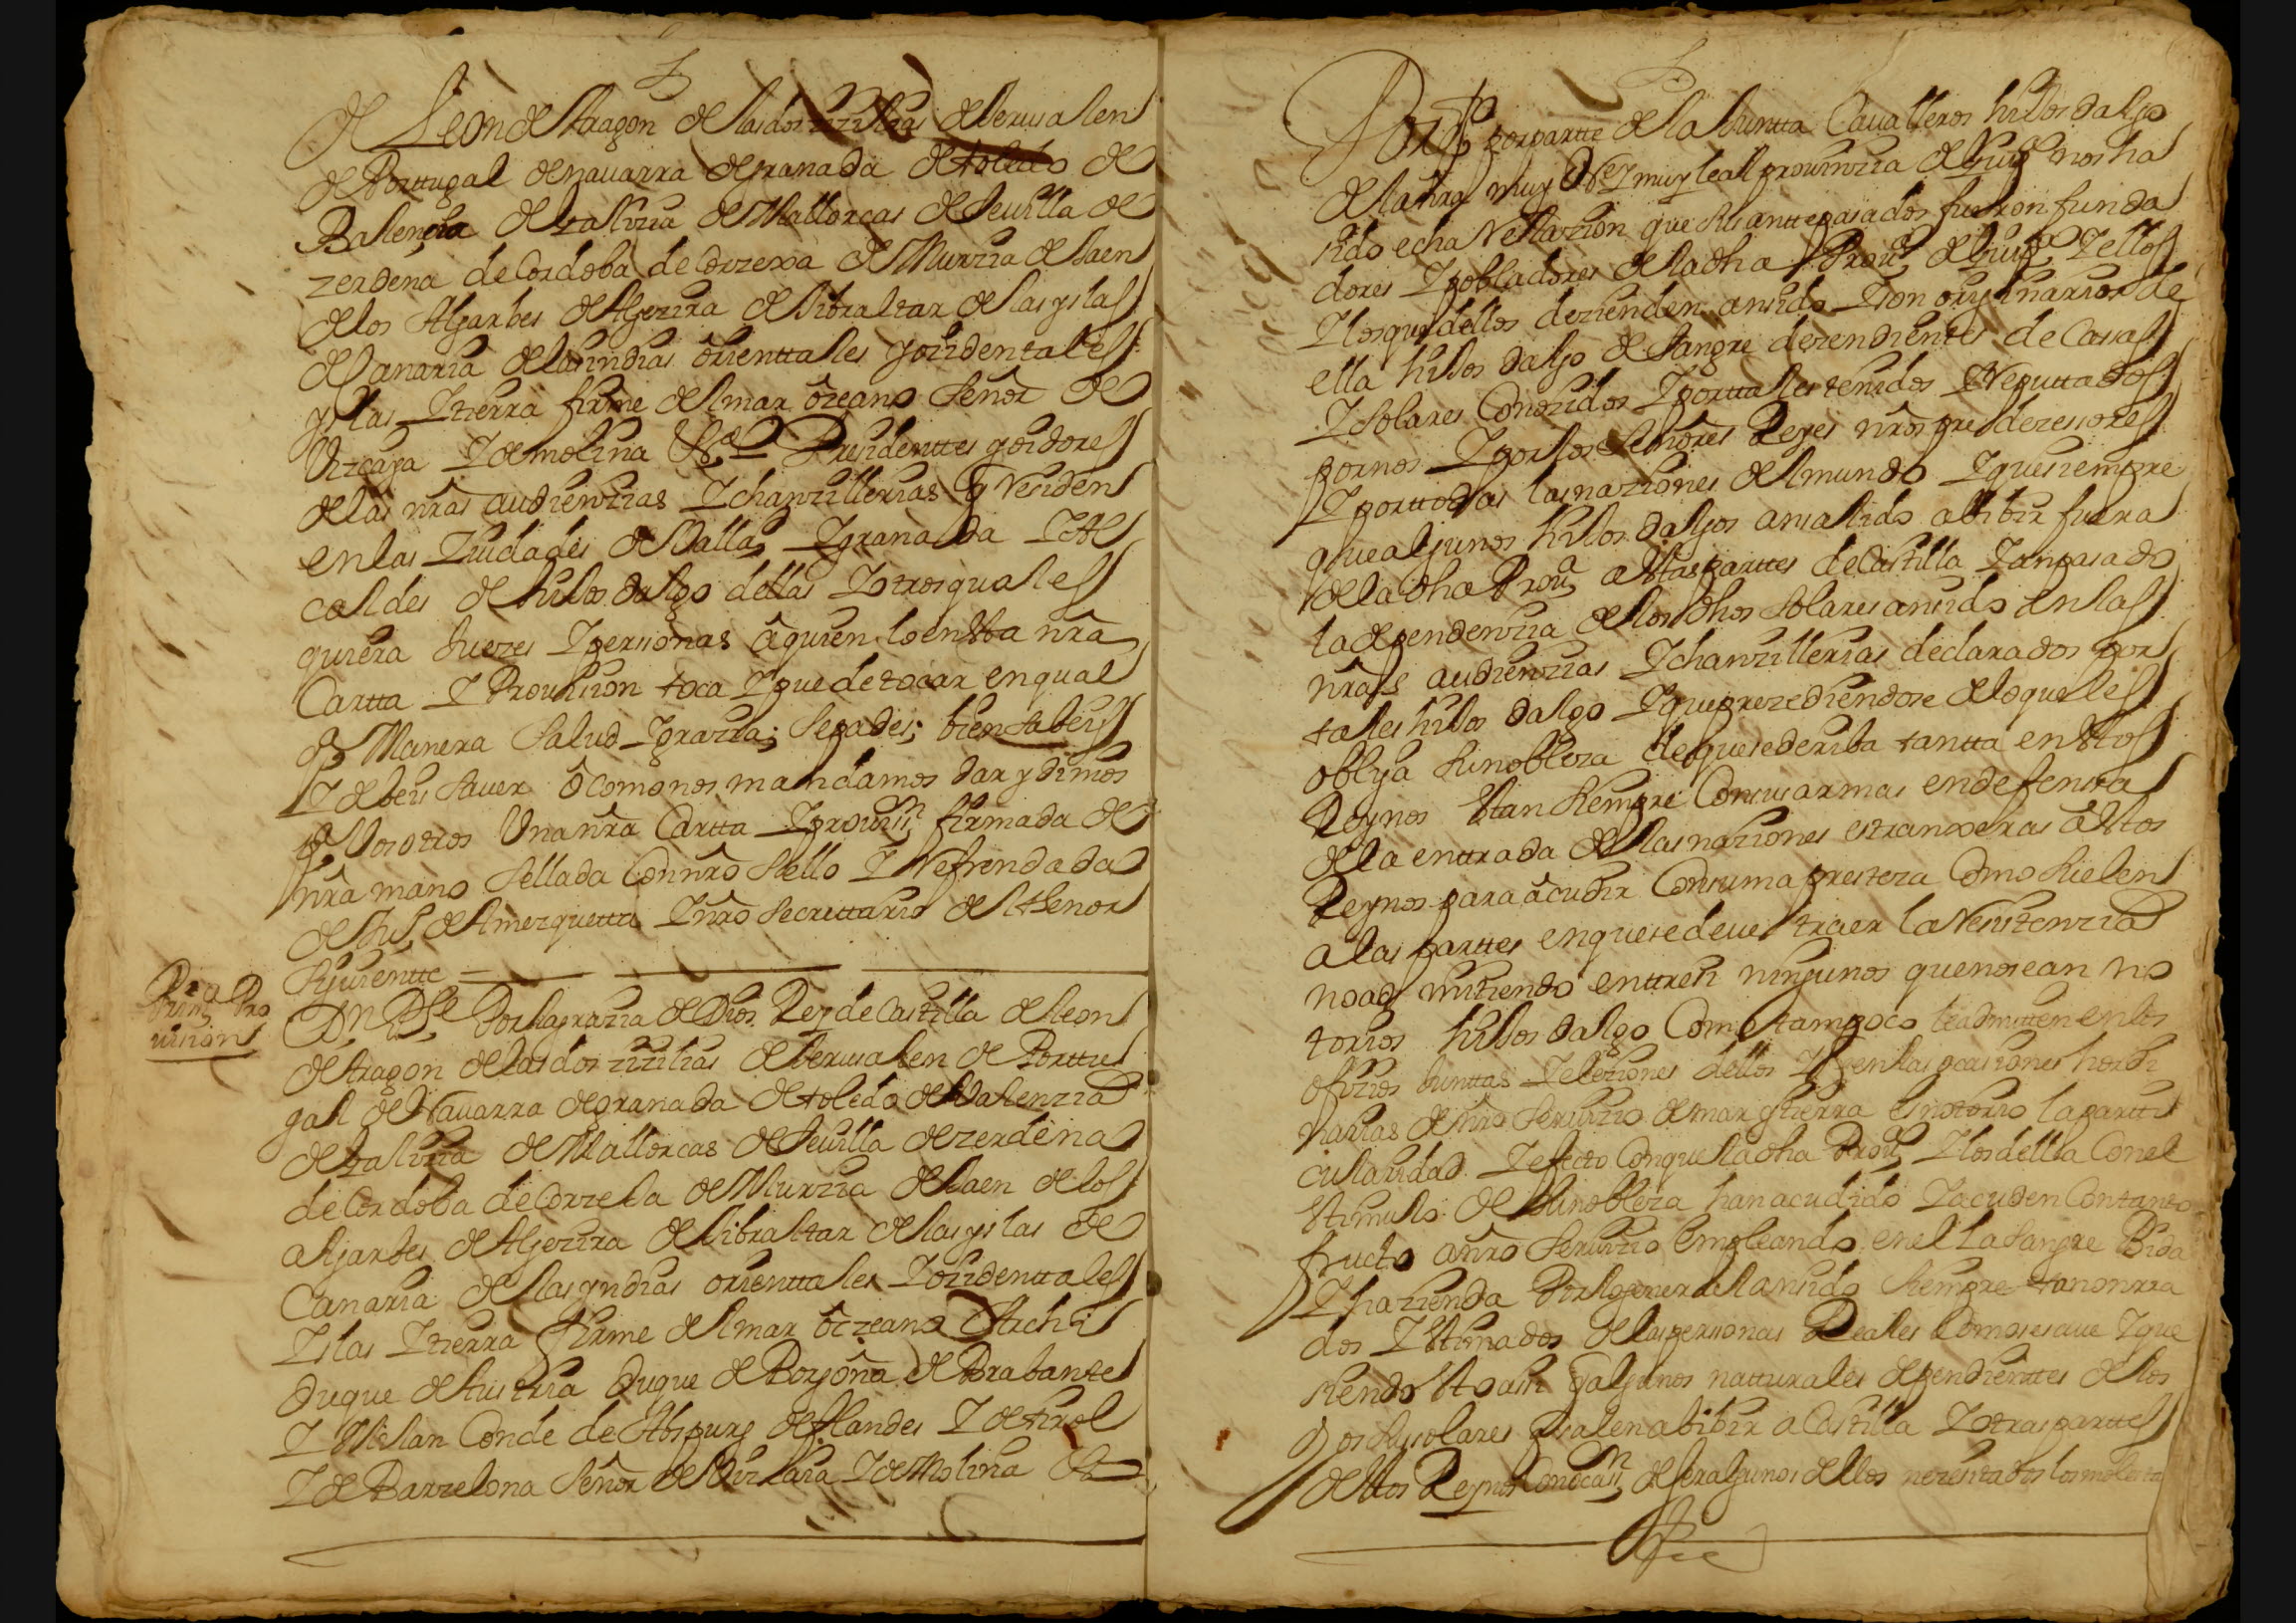 de Leon de Aragon de las dos zizilias de Jerusalen
de Porttugal de navarra de granada de toledo de
Balençia de galizia de Mallorcas de Sevilla de
zerdena de Cordoba de Corzega de Murzia de Jaen
de los Algarbes de Algezira de Jibraltar de las yslas
de Canaria de las indias orienttales y ozidentales
yslas Y tierra firme del mar ozeano Señor de
Vizcaya Y de molina &ª Presidenttes y oidores
de las nras audienzias Y chanzillerias q Residen
en las Ziudades de Vallid Y granada Y Al
caldes de hijos dalgo dellas Y otros quales
quiera Juezes Y personas a quien lo en esta nra
Cartta Y Provission toca Y puede tocar en qual
qr Manera Salud Y grazia; Sepades; bien sabeis
Y debeis saver o como nos mandamos dar y dimos
pª Vosotros Una nra Cartta Y provissn firmada de
nra mano sellada Con nro sello Y Refrendada
de Luis de Amezquetta Y nro Secrettario del thenor
siguientte =
Primª Pro
vision
Dn Phe Por la grazia de Dios Rey de Castilla de leon
de Aragon de las dos zizilias de Jerusalen de Porttu
gal de Navarra de granada de toledo de Valenzia
de galizia de Mallorcas de Sevilla de zerdena
de Cordoba de Corzega de Murzia de Jaen de los
algarbes de Algezira de Jibraltar de las yslas de
Canaria de las yndias orienttales Y ozidenttales
Yslas Y tierra firme del mar oczeano Archi
duque de Austria Duque de Borgoña de Brabante
Y Milan Conde de Abspurg de flandes Y de tirol
Y de Barzelona Señor de Vizcaya Y de Molina &ª
Por qto por partte de la Juntta Cavalleros hijos dalgo
de la nra muy Ne Y muy leal provinzia de Guipª nos ha
sido echa Relazion que sus anttepasados fueron funda
dores Y pobladores de la dha Provª de Guipª Y ellos
Y los que dellos dezienden an sido Y son originarios de
ella hijos dalgo de Sangre dezendientes de Casas
Y Solares Conozidos Y por ttales tenidos Y Reputtados
por nos Y por los Señores Reyes nros predezesores
Y por ttodas las naziones del mundo Y que siempre
que algunos hijos dalgos an salido a bibir fuera
de la dha Provª a estas parttes de Castilla Y an pasado
la dependenzia de los dhos solares an sido en las
nras audienzias Y chanzillerias declarados por
tales hijos dalgo Y que prezediendose de lo que les
obliga su nobleza de que se deriba tantta en estos
Reynos estan siempre Con sus armas en defensa
de la enttrada de las naziones estranxeras a estos
Reynos para acudir Con suma presteza Como suelen
a las parttes en que se deve traer la Resistenzia
no admitiendo enttren ningunos que no sean no
torios hijos dalgo Como tampoco se admitten en los
ofizios Junttas Y eleziones dellos Y en las ocasiones hordi
narias de nro Servizio de mar y tierra es notorio la partti
cularidad Y efecto Con que la dha Provª Y los della Con el
estimulo de su nobleza han acudido Y acuden Con tanto
fructo a nro Servizio Empleando en el la Sangre Bida
Y hazienda Por lo qual an sido siempre tan onrra
dos Y estimados de las personas Reales Como se save Y que
siendo esto asi Y algunos natturales dependienttes de los
dhos solares q salen a bibir a Castilla Y otras parttes
destos Reynos Con ocasn de ser algunos dellos nezesitados los molesta